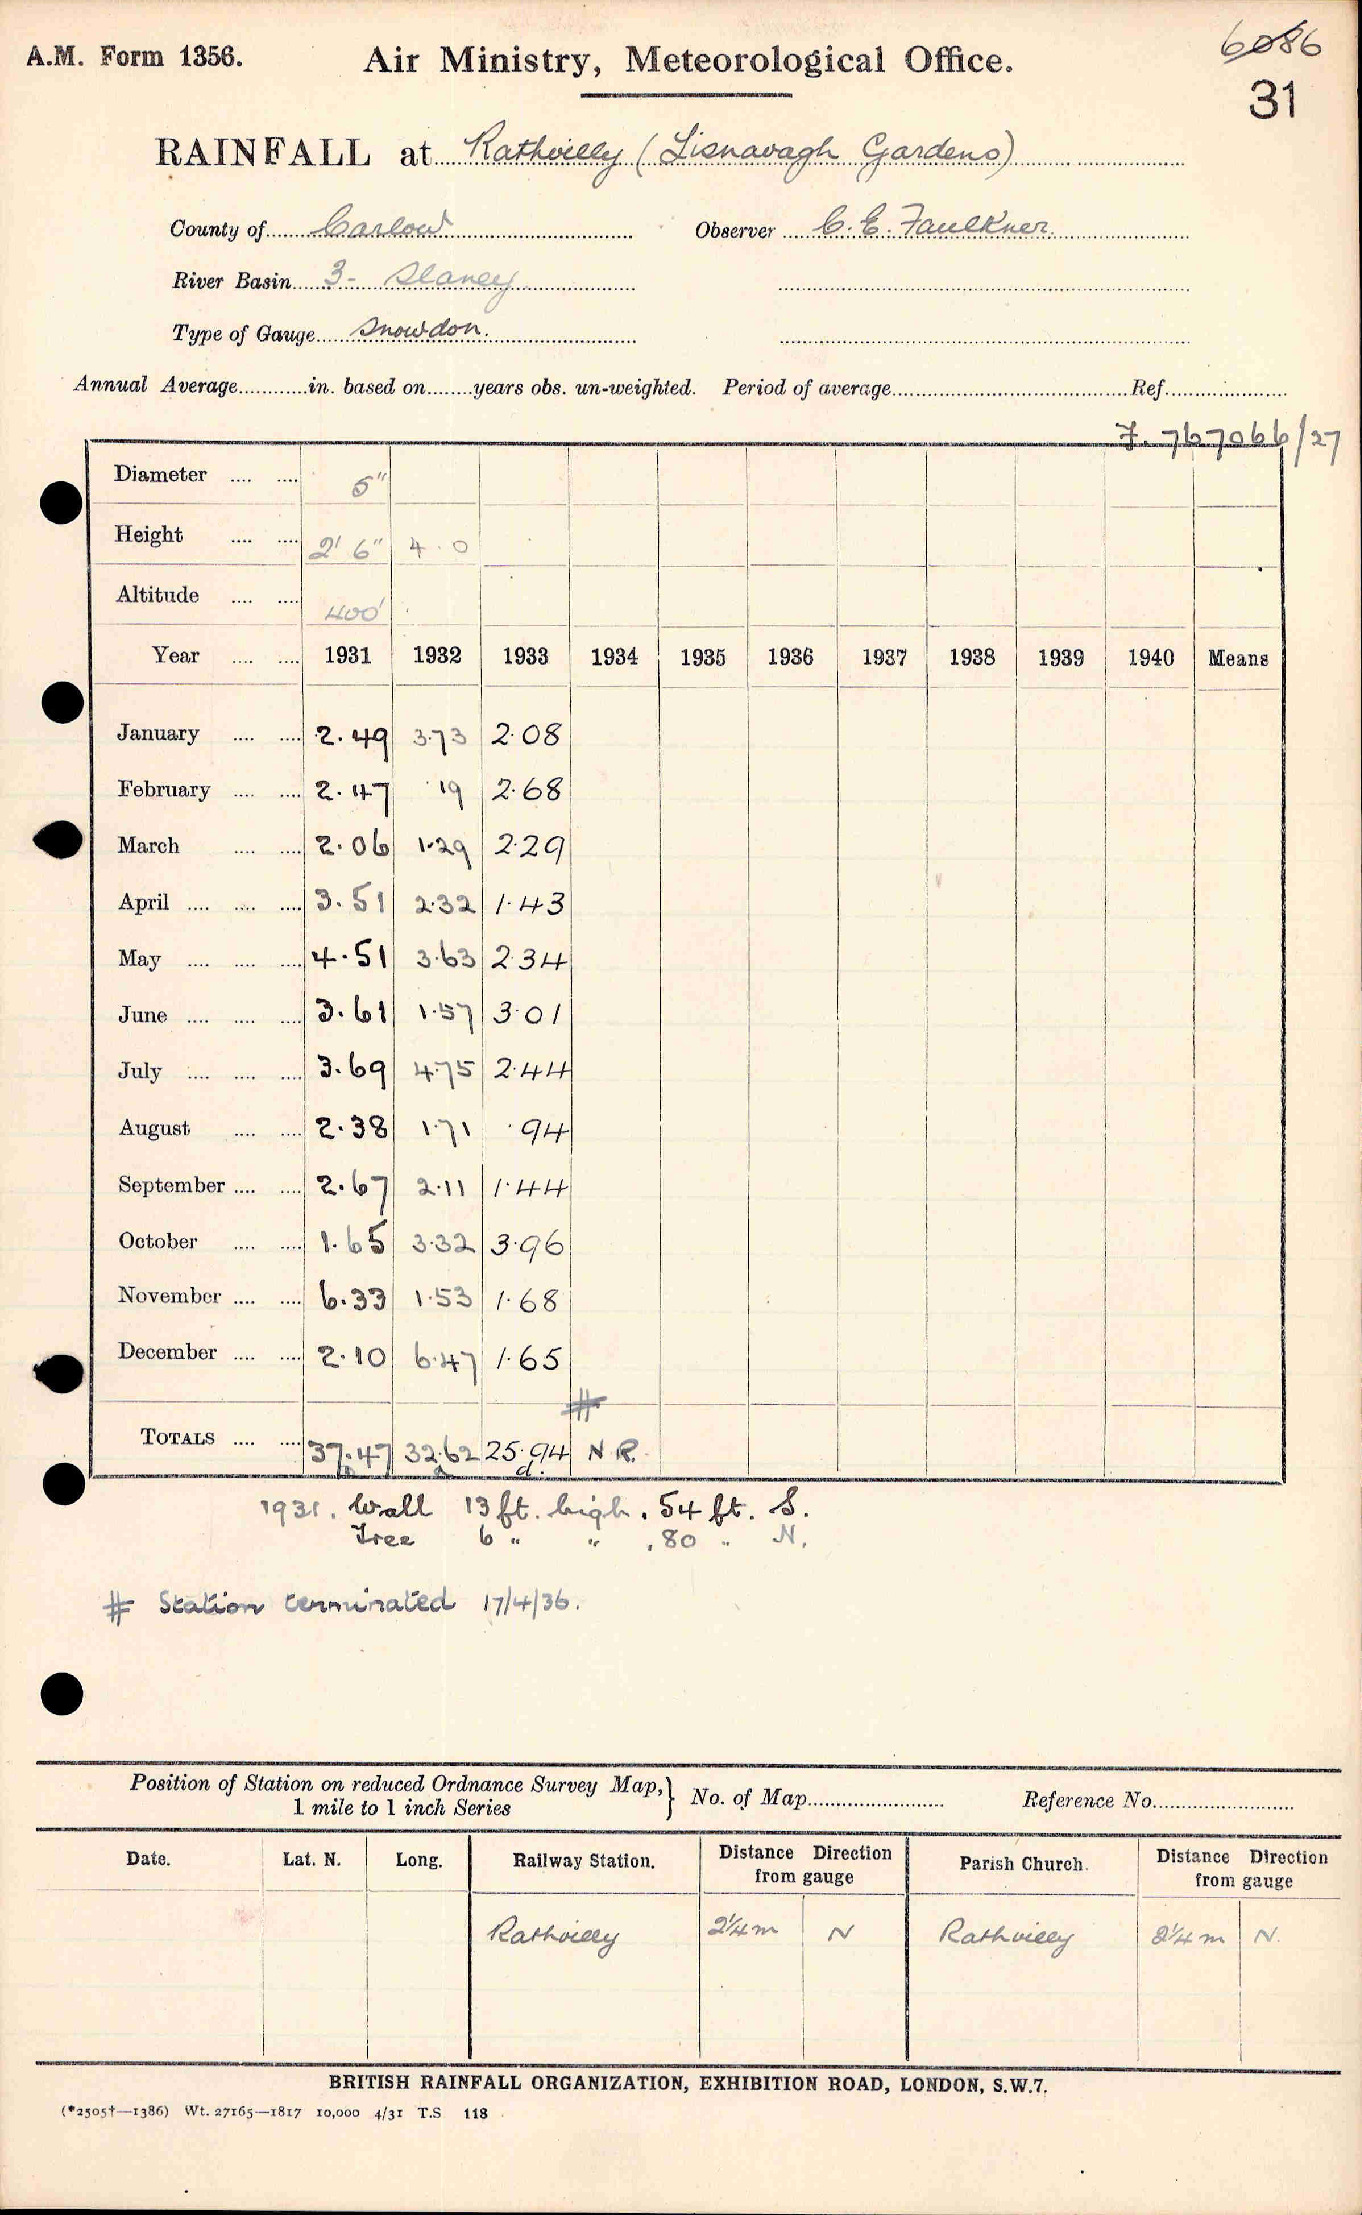 A.M. Form 1356.
Air Ministry, Meteorological Office.
6086
31
RAINFALL at Rathvilly (Lisnavagh Gardens)
County of Carlow Observer C. E. Faulkner.
River Basin 3- Slaney
Type of Gauge Snowdon.
Annual Average in. based on years obs. un-weighted. Period of average Ref.
F. 767066/27
Diameter 5"
Height 2' 6" 4.0
Altitude 400'
Year 1931 1932 1933 1934 1935 1936 1937 1938 1939 1940 Means
January 2.49 3.73 2.08
February 2.47 .19 2.68
March 2.06 1.29 2.29
April 3.51 2.32 1.43
May 4.51 3.63 2.34
June 3.61 1.57 3.01
July 3.69 4.75 2.44
August 2.38 1.71 .94
September 2.67 2.11 1.44
October 1.65 3.32 3.96
November 6.33 1.53 1.68
December 2.10 6.47 1.65
#
TOTALS 37.47 32.62 25.94 N R.
d.
1931. Wall 13 ft. high, 54 ft. S.
Tree 6 " " , 80 " N.
# Station terminated 17/4/36.
Position of Station on reduced Ordnance Survey Map, } No. of Map Reference No.
1 mile to 1 inch Series
Date. Lat. N. Long. Railway Station. Distance Direction from gauge Parish Church. Distance Direction from gauge
Rathvilly 2¼ m N Rathvilly 2¼ m N.
BRITISH RAINFALL ORGANIZATION, EXHIBITION ROAD, LONDON, S.W.7.
(*2505†—1386) Wt. 27165—1817 10,000 4/31 T.S 118